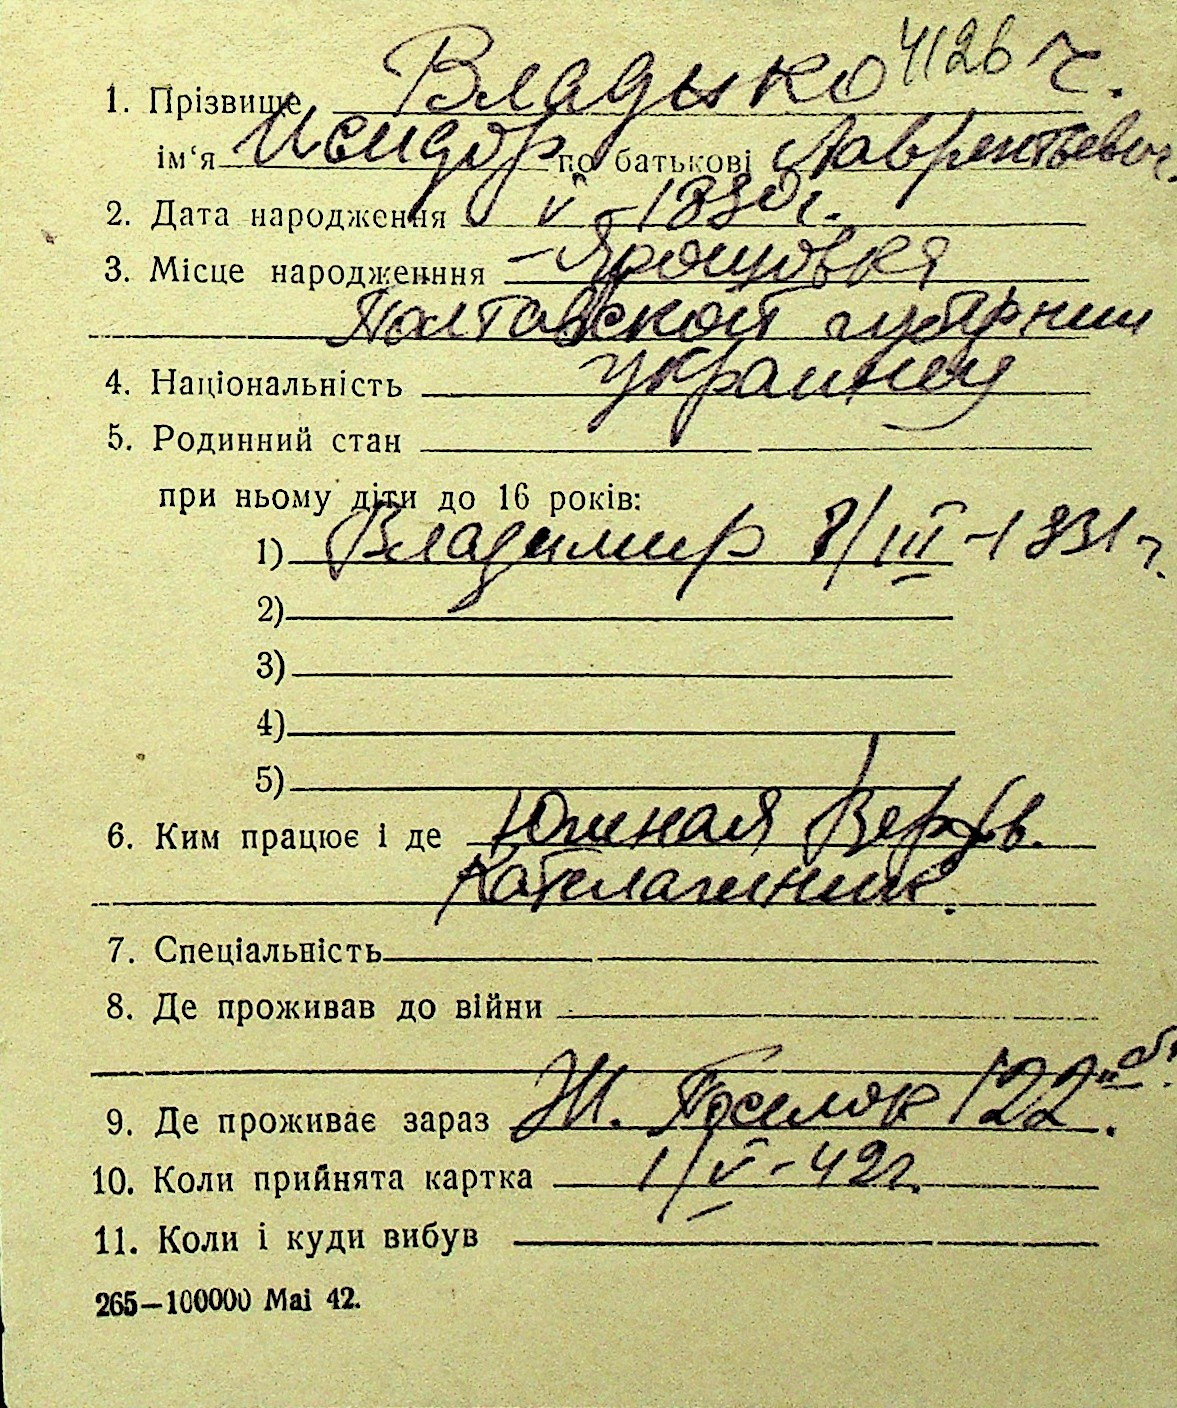 1. Прізвище Владыко 4126 г.
ім‘я Исидор по батькові Лаврентьевич
2. Дата народження V - 1880 г.
3. Місце народженння - Ярошовка
Полтавской губернии
4. Національність украинец
5. Родинний стан
при ньому діти до 16 років:
1) Владимир 8/III - 1931 г.
2)
3)
4)
5)
6. Ким працює і де Южная Верфь.
Котельщик.
7. Спеціальність
8. Де проживав до війни
9. Де проживає зараз Поселок 122
10. Коли прийнята картка 1/V - 42 г.
11. Коли і куди вибув
265—100000 Маі 42.